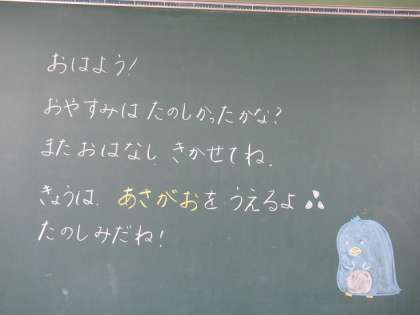 おはよう!
おやすみは たのしかったかな?
また おはなし きかせてね.
きょうは. あさがおを うえるよ
たのしみだね!